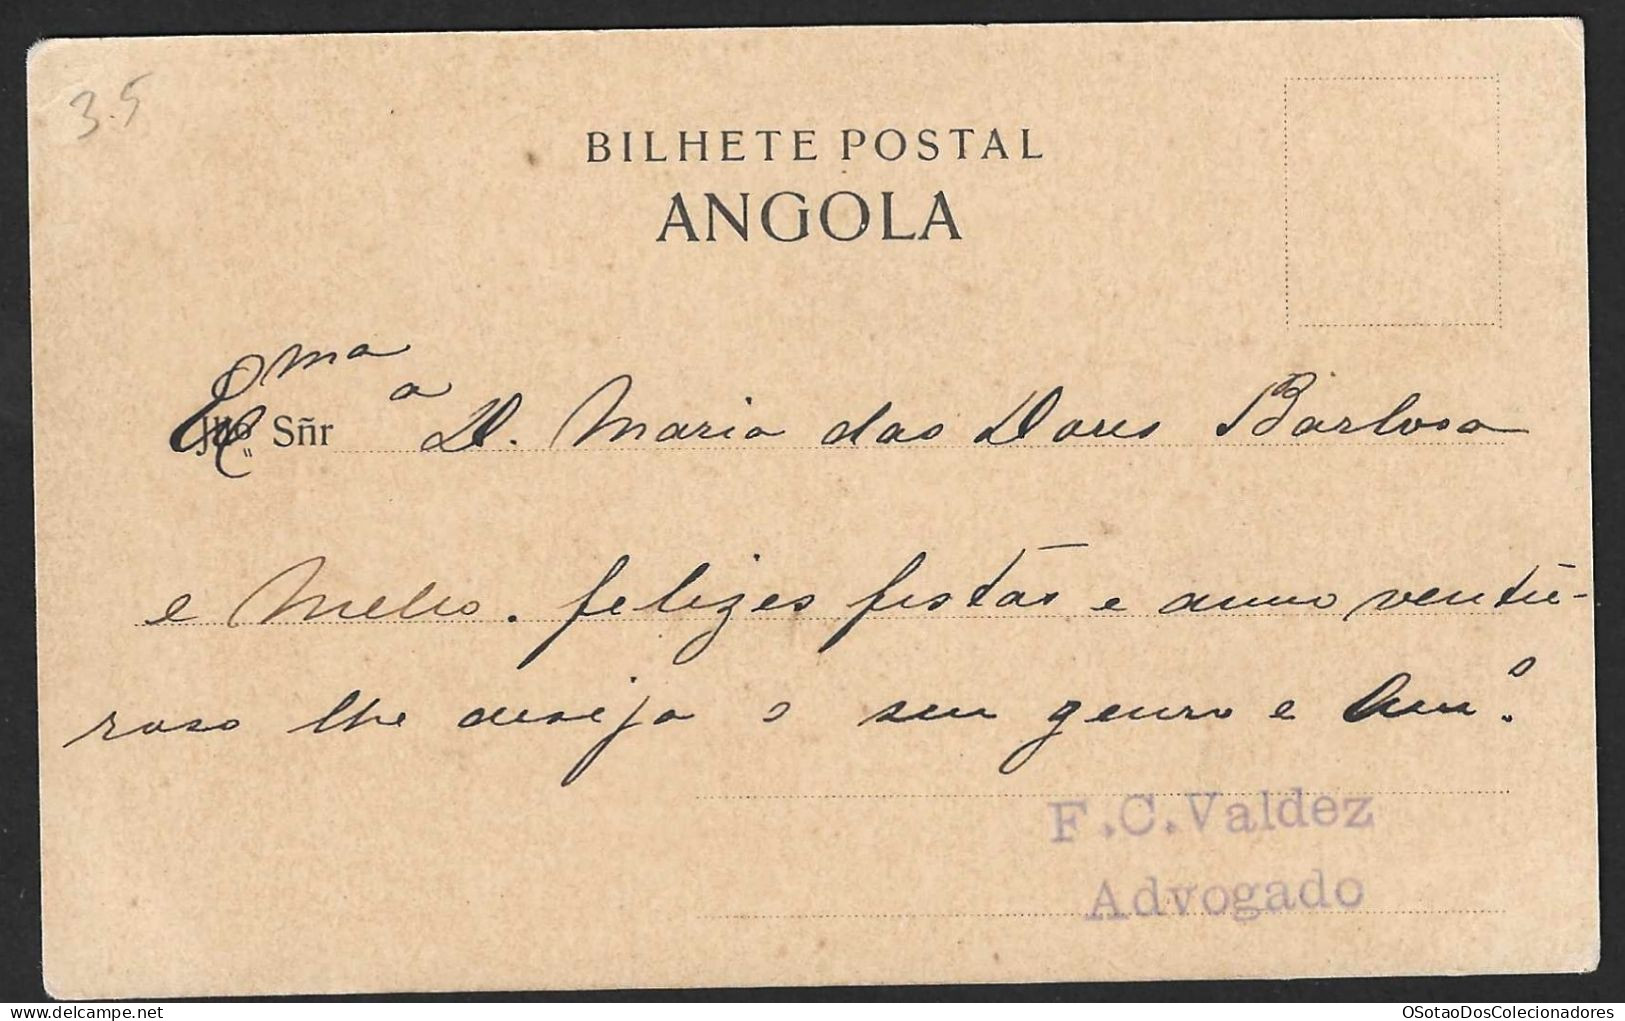 3.5
BILHETE POSTAL
ANGOLA
Exma Sñr a D. Maria das Dores Barbosa
e Mello. felizes festas e anno ventu-
roso lhe deseja o seu genro e Amo.
F.C. Valdez
Advogado
delcampe.net
OSotaoDosColecionadores